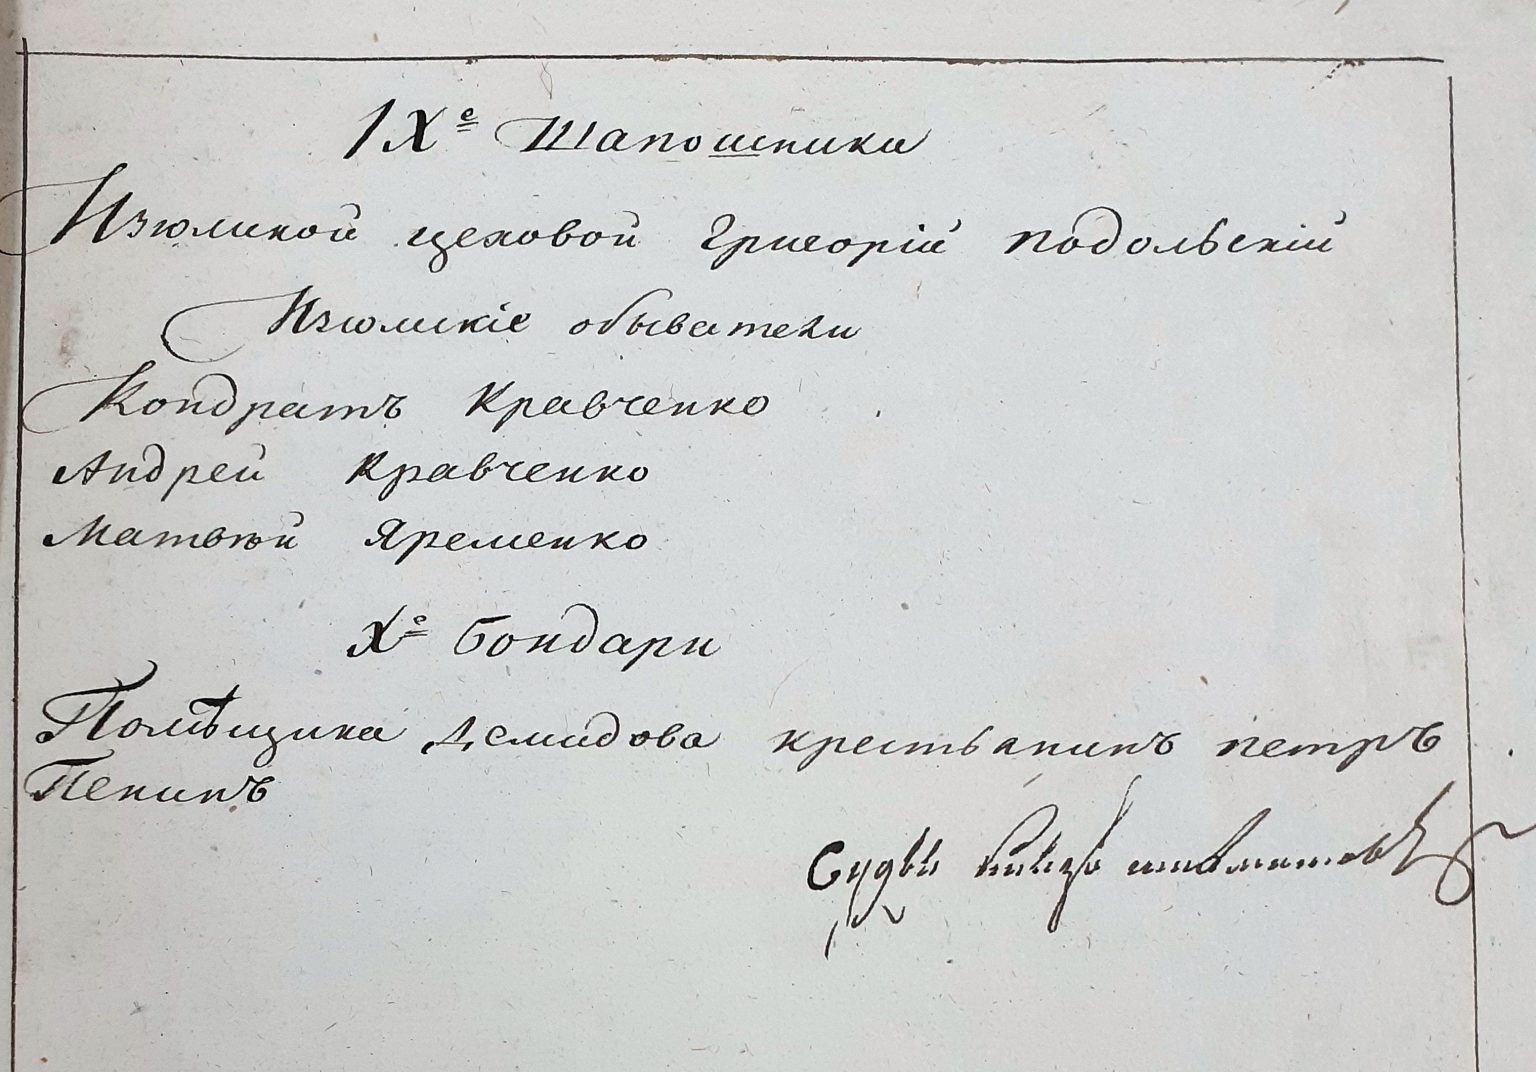 IХе Шапошники
Изюмской цеховой Григорій Подольскій
Изюмскіе обыватели
Кондратъ Кравченко
Андрей Кравченко
Матвѣй Яременко
Хе Бондари
Помѣщика Демидова крестьянинъ Петръ
Пенинъ
Судья Князь